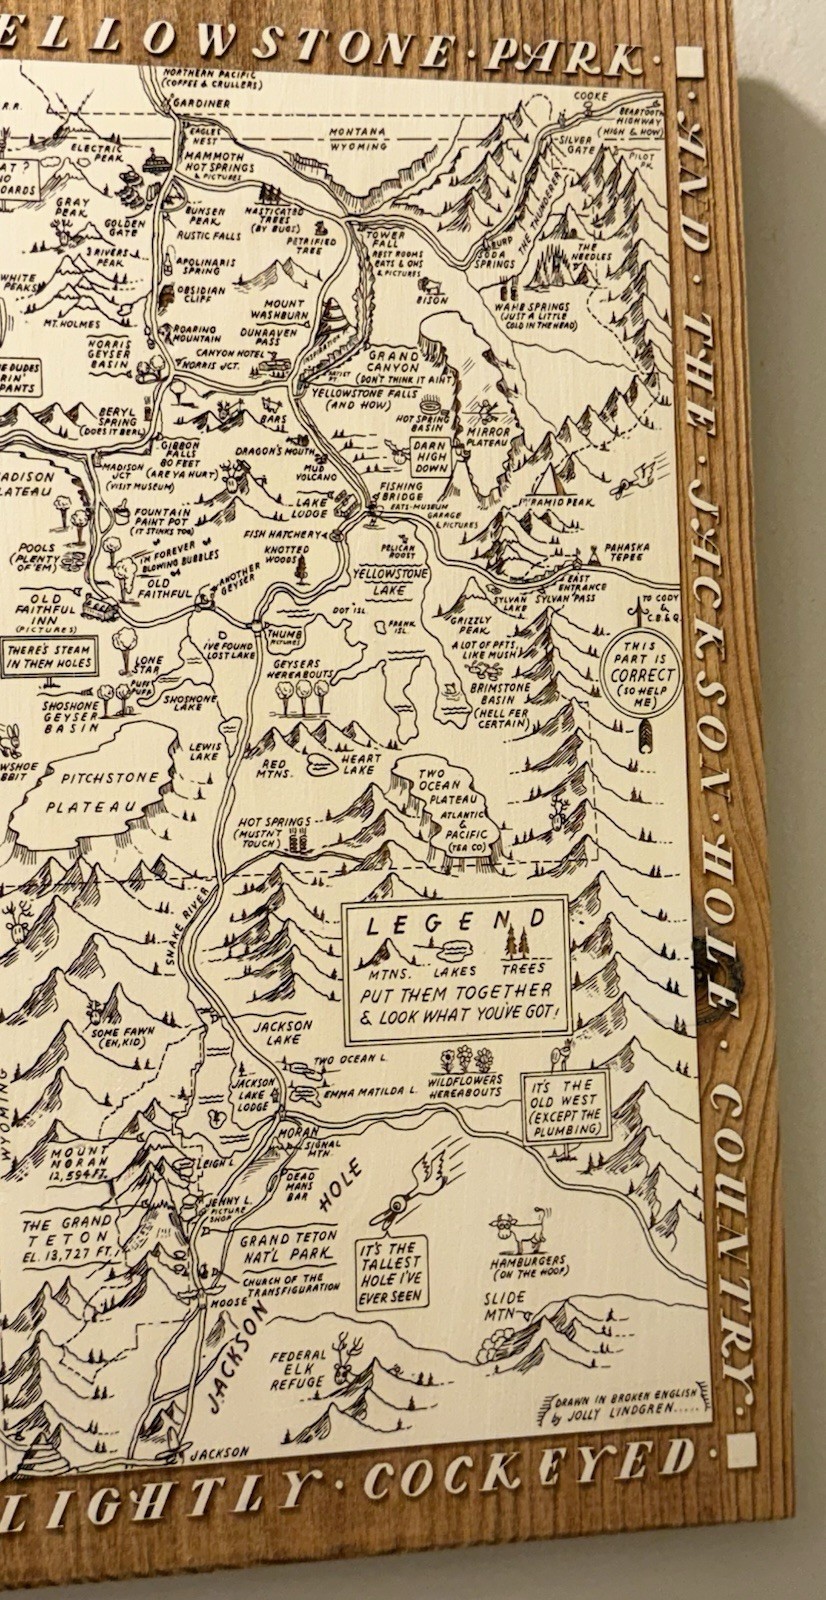 ELLOWSTONE·PARK·
·AND·THE·JACKSON·HOLE·COUNTRY·
LIGHTLY·COCKEYED·
NORTHERN PACIFIC
(COFFEE & CRULLERS)
GARDINER
R.R.
COOKE
BEARTOOTH
HIGHWAY
(HIGH & HOW)
EAGLES
NEST
MONTANA
WYOMING
ELECTRIC
PEAK
MAMMOTH
HOT SPRINGS
& PICTURES
SILVER
GATE
PILOT
PK.
AT ?
NO
OARDS
GRAY
PEAK
GOLDEN
GATE
BUNSEN
PEAK
RUSTIC FALLS
MASTICATED
TREES
(BY BUGS)
PETRIFIED
TREE
TOWER
FALL
REST ROOMS
EATS & OHS
& PICTURES
BURP
SODA
SPRINGS
THE THUNDERER
THE
NEEDLES
3 RIVERS
PEAK
APOLINARIS
SPRING
WHITE
PEAKS
OBSIDIAN
CLIFF
BISON
WAHB SPRINGS
(JUST A LITTLE
COLD IN THE HEAD)
MT. HOLMES
MOUNT
WASHBURN
ROARING
MOUNTAIN
DUNRAVEN
PASS
NORRIS
GEYSER
BASIN
CANYON HOTEL
NORRIS JCT.
INSPIRATION
ARTIST
PT.
GRAND
CANYON
(DON'T THINK IT AIN'T)
E DUDES
RIN'
PANTS
YELLOWSTONE FALLS
(AND HOW)
BERYL
SPRING
(DOES IT BERL)
BARS
HOT SPRING
BASIN
MIRROR
PLATEAU
GIBBON
FALLS
80 FEET
(ARE YA HURT)
DRAGON'S MOUTH
MUD
VOLCANO
DARN
HIGH
DOWN
MADISON
JCT
(VISIT MUSEUM)
ADISON
LATEAU
LAKE
LODGE
FISHING
BRIDGE
EATS-MUSEUM
GARAGE
& PICTURES
PYRAMID PEAK
FOUNTAIN
PAINT POT
(IT STINKS TOO)
FISH HATCHERY
POOLS
(PLENTY
OF 'EM)
I'M FOREVER
BLOWING BUBBLES
KNOTTED
WOODS
PELICAN
ROOST
PAHASKA
TEPEE
OLD
FAITHFUL
ANOTHER
GEYSER
YELLOWSTONE
LAKE
EAST
ENTRANCE
SYLVAN
LAKE
SYLVAN PASS
OLD
FAITHFUL
INN
(PICTURES)
DOT ISL.
FRANK
ISL.
GRIZZLY
PEAK
TO CODY
&
C.B.&Q.
THERE'S STEAM
IN THEM HOLES
I'VE FOUND
LOST LAKE
THUMB
PICTURES
A LOT OF PFTS.
LIKE MUSH
THIS
PART IS
CORRECT
(SO HELP
ME)
LONE
STAR
GEYSERS
HEREABOUTS
PUFF
PUFF
SHOSHONE
GEYSER
BASIN
SHOSHONE
LAKE
BRIMSTONE
BASIN
(HELL FER
CERTAIN)
WSHOE
BBIT
LEWIS
LAKE
RED
MTNS.
HEART
LAKE
PITCHSTONE
PLATEAU
TWO
OCEAN
PLATEAU
ATLANTIC
&
PACIFIC
(TEA CO)
HOT SPRINGS
(MUSTN'T
TOUCH)
SNAKE RIVER
LEGEND
MTNS. LAKES TREES
PUT THEM TOGETHER
& LOOK WHAT YOU'VE GOT!
SOME FAWN
(EH, KID)
JACKSON
LAKE
TWO OCEAN L.
EMMA MATILDA L.
WILDFLOWERS
HEREABOUTS
IT'S THE
OLD WEST
(EXCEPT THE
PLUMBING)
JACKSON
LAKE
LODGE
WYOMING
MOUNT
MORAN
12,594 FT.
MORAN
SIGNAL
MTN.
LEIGH L.
DEAD
MANS
BAR
JENNY L.
PICTURE
SHOP
THE GRAND
TETON
EL. 13,727 FT.
GRAND TETON
NAT'L PARK
JACKSON HOLE
IT'S THE
TALLEST
HOLE I'VE
EVER SEEN
HAMBURGERS
(ON THE HOOF)
CHURCH OF THE
TRANSFIGURATION
MOOSE
SLIDE
MTN
FEDERAL
ELK
REFUGE
DRAWN IN BROKEN ENGLISH
by JOLLY LINDGREN.....
JACKSON